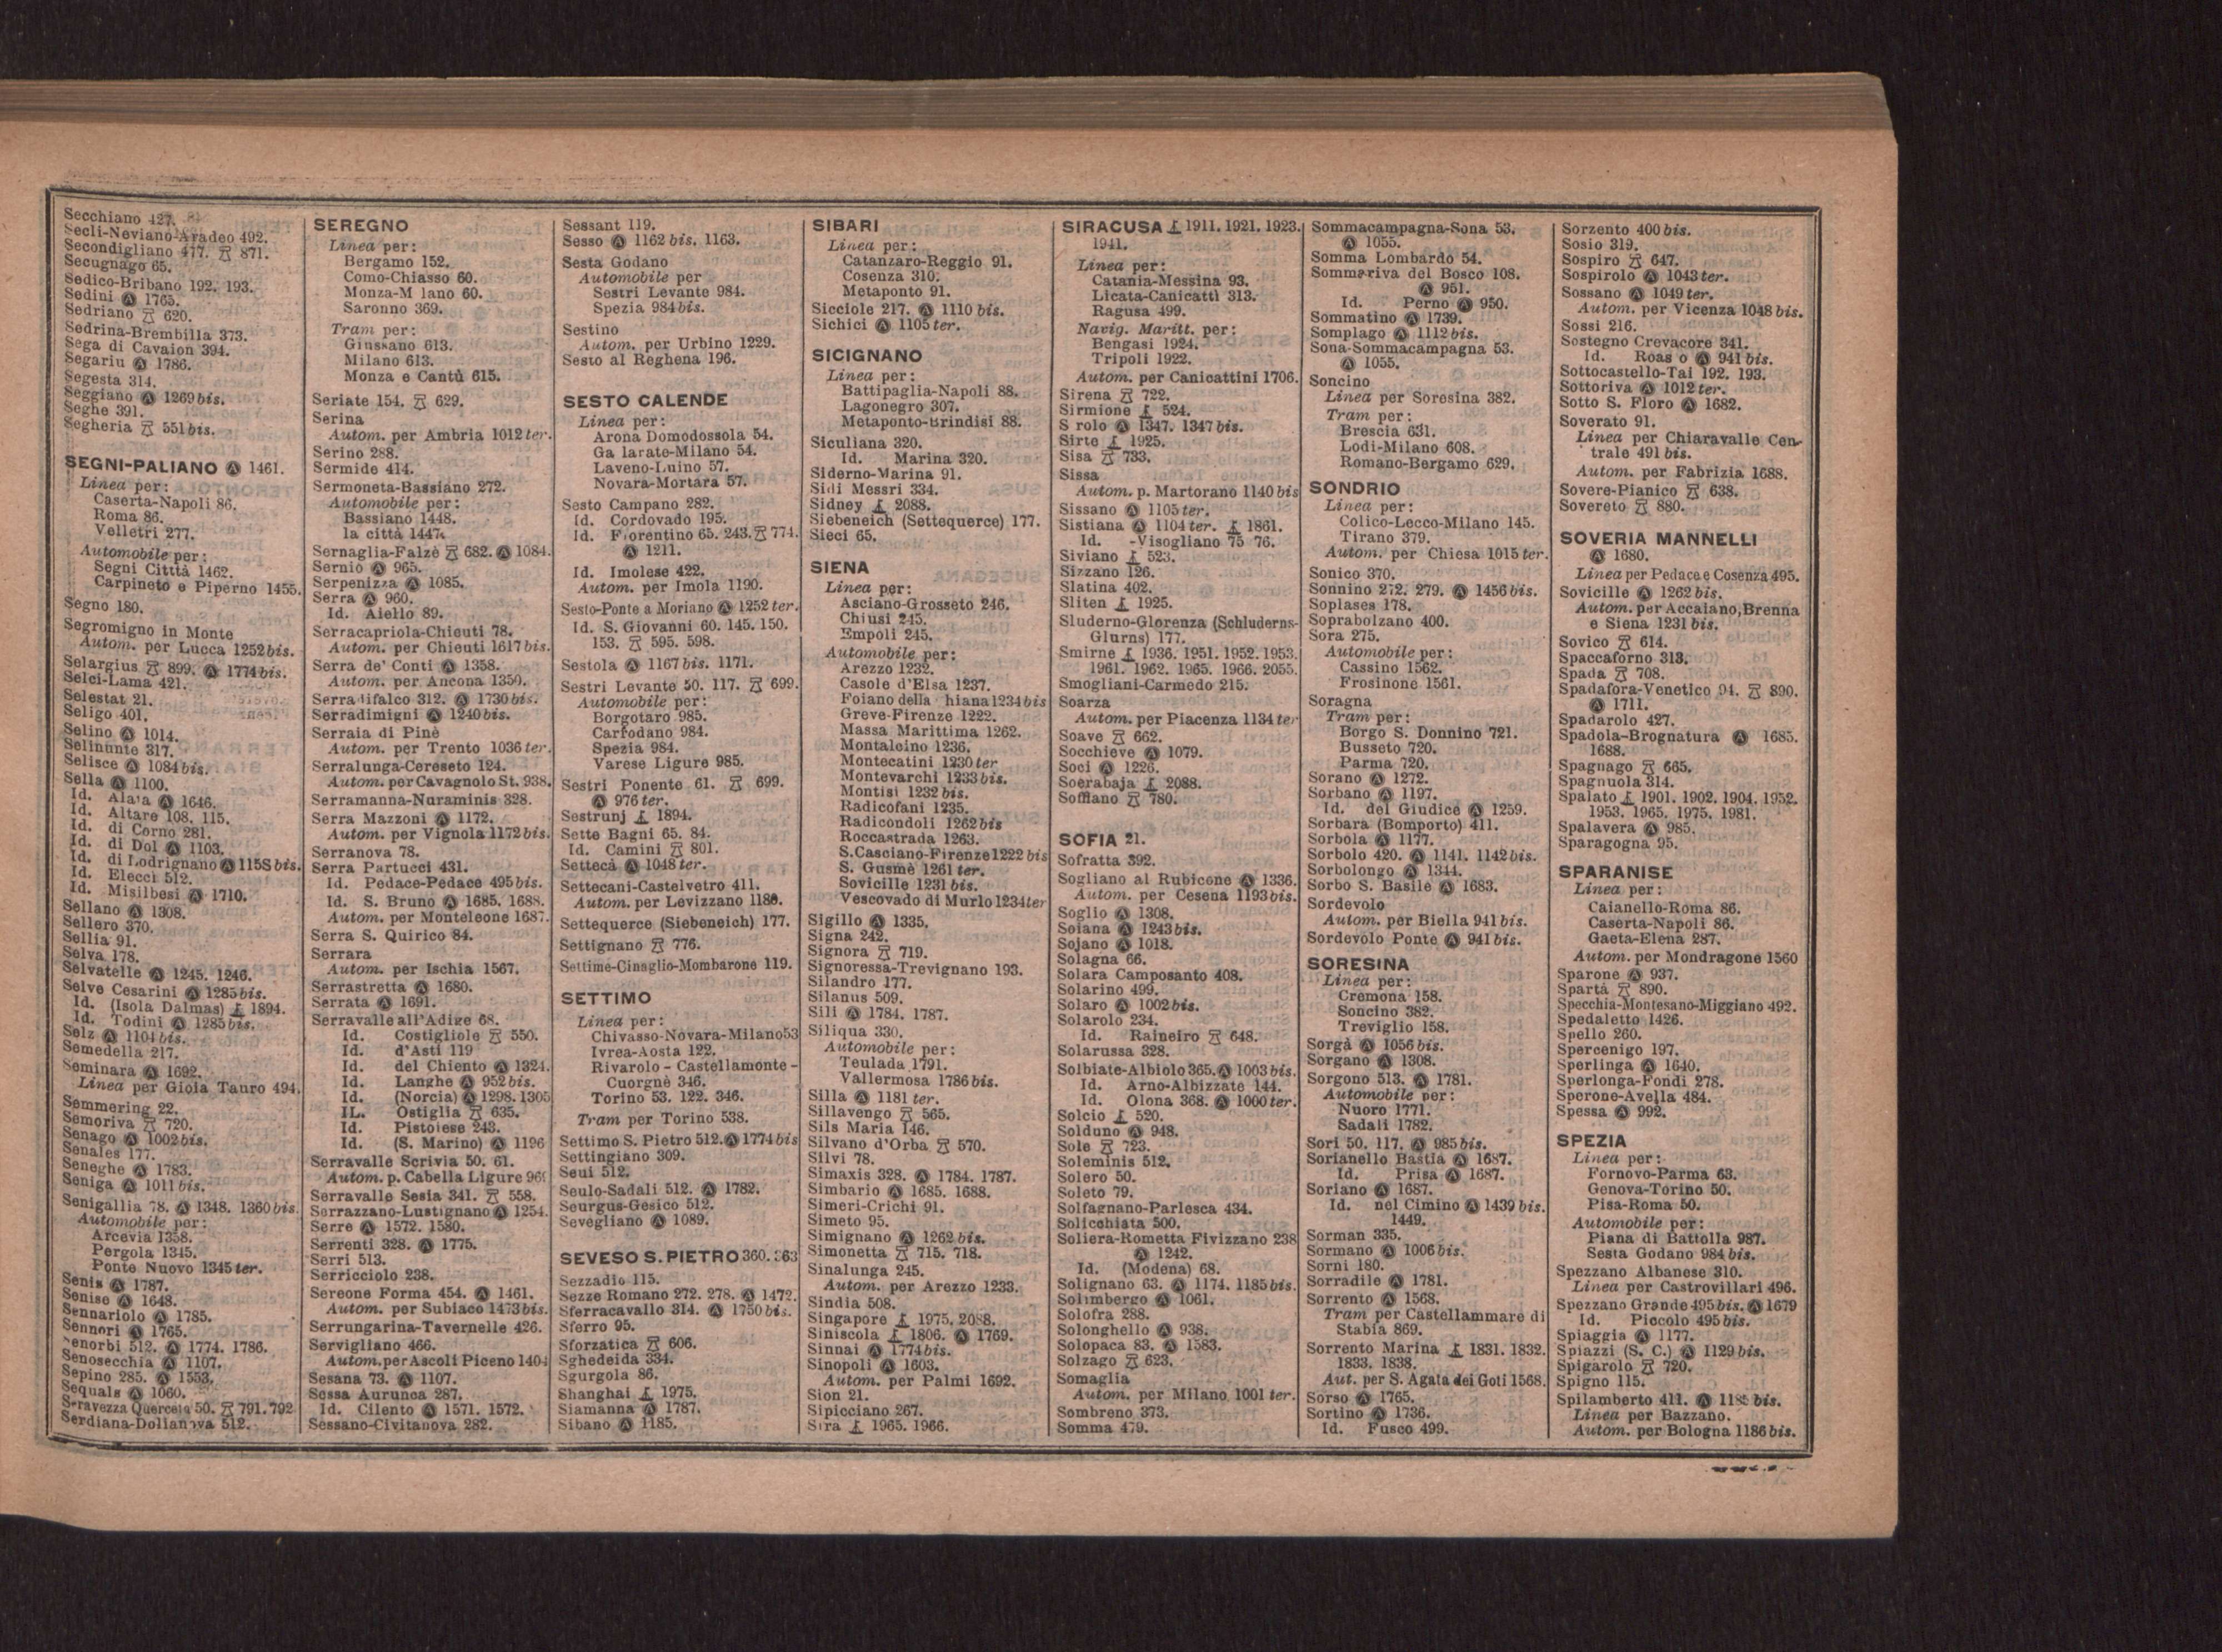 Secchiano 427.
Secli-Neviano-Aradeo 492.
Secondigliano 477. 871.
Secugnago 65.
Sedico-Bribano 192. 193.
Sedini Ⓐ 1765.
Sedriano 620.
Sedrina-Brembilla 373.
Sega di Cavaion 394.
Segariu Ⓐ 1786.
Segesta 314.
Seggiano Ⓐ 1269 bis.
Seghe 391.
Segheria 551 bis.
SEGNI-PALIANO Ⓐ 1461.
Linea per:
Caserta-Napoli 86.
Roma 86.
Velletri 277.
Automobile per:
Segni Citttà 1462.
Carpineto e Piperno 1455.
Segno 180.
Segromigno in Monte
Autom. per Lucca 1252 bis.
Selargius 899. Ⓐ 1774 bis.
Selci-Lama 421.
Selestat 21.
Seligo 401.
Selino Ⓐ 1014.
Selinunte 317.
Selisce Ⓐ 1084 bis.
Sella Ⓐ 1100.
Id. Alata Ⓐ 1646.
Id. Altare 108. 115.
Id. di Corno 281.
Id. di Dol Ⓐ 1103.
Id. di Lodrignano Ⓐ 1158 bis.
Id. Elecci 512.
Id. Misilbesi Ⓐ 1710.
Sellano Ⓐ 1308.
Sellero 370.
Sellia 91.
Selva 178.
Selvatelle Ⓐ 1245. 1246.
Selve Cesarini Ⓐ 1285 bis.
Id. (Isola Dalmas) 1894.
Id. Todini Ⓐ 1285 bis.
Selz Ⓐ 1104 bis.
Semedella 217.
Seminara Ⓐ 1692.
Linea per Gioia Tauro 494.
Semmering 22.
Semoriva 720.
Senago Ⓐ 1002 bis.
Senales 177.
Seneghe Ⓐ 1783.
Seniga Ⓐ 1011 bis.
Senigallia 78. Ⓐ 1348. 1360 bis.
Automobile per:
Arcevia 1358.
Pergola 1345.
Ponte Nuovo 1345 ter.
Senis Ⓐ 1787.
Senise Ⓐ 1648.
Sennariolo Ⓐ 1785.
Sennori Ⓐ 1765.
Senorbi 512. Ⓐ 1774. 1786.
Senosecchia Ⓐ 1107.
Sepino 285. Ⓐ 1553.
Sequals Ⓐ 1060.
Seravezza Querceta 50. 791. 792
Serdiana-Dolianova 512.
SEREGNO
Linea per:
Bergamo 152.
Como-Chiasso 60.
Monza-M lano 60.
Saronno 369.
Tram per:
Giussano 613.
Milano 613.
Monza e Cantù 615.
Seriate 154. 629.
Serina
Autom. per Ambria 1012 ter.
Serino 288.
Sermide 414.
Sermoneta-Bassiano 272.
Automobile per:
Bassiano 1448.
la città 1447.
Sernaglia-Falzè 682. Ⓐ 1084.
Sernio Ⓐ 965.
Serpenizza Ⓐ 1085.
Serra Ⓐ 960.
Id. Aiello 89.
Serracapriola-Chieuti 78.
Autom. per Chieuti 1617 bis.
Serra de' Conti Ⓐ 1358.
Autom. per Ancona 1350.
Serradifalco 312. Ⓐ 1730 bis.
Serradimigni Ⓐ 1240 bis.
Serraia di Pinè
Autom. per Trento 1036 ter.
Serralunga-Cereseto 124.
Autom. per Cavagnolo St. 938.
Serramanna-Nuraminis 328.
Serra Mazzoni Ⓐ 1172.
Autom. per Vignola 1172 bis.
Serranova 78.
Serra Partucci 431.
Id. Pedace-Pedace 495 bis.
Id. S. Bruno Ⓐ 1685. 1688.
Autom. per Monteleone 1687.
Serra S. Quirico 84.
Serrara
Autom. per Ischia 1567.
Serrastretta Ⓐ 1680.
Serrata Ⓐ 1691.
Serravalle all'Adige 68.
Id. Costigliole 550.
Id. d'Asti 119
Id. del Chiento Ⓐ 1324.
Id. Langhe Ⓐ 952 bis.
Id. (Norcia) Ⓐ 1298. 1305
IL. Ostiglia 635.
Id. Pistoiese 243.
Id. (S. Marino) Ⓐ 1196
Serravalle Scrivia 50. 61.
Autom. p. Cabella Ligure
Serravalle Sesia 341. 558.
Serrazzano-Lustignano Ⓐ 1254.
Serre Ⓐ 1572. 1580.
Serrenti 328. Ⓐ 1775.
Serri 513.
Serricciolo 238.
Serrone Forma 454. Ⓐ 1461.
Autom. per Subiaco 1473 bis.
Serrungarina-Tavernelle 426.
Servigliano 466.
Autom. per Ascoli Piceno 1404
Sesana 73. Ⓐ 1107.
Sessa Aurunca 287.
Id. Cilento Ⓐ 1571. 1572.
Sessano-Civitanova 282.
Sessant 119.
Sesso Ⓐ 1162 bis. 1163.
Sesta Godano
Automobile per
Sestri Levante 984.
Spezia 984 bis.
Sestino
Autom. per Urbino 1229.
Sesto al Reghena 196.
SESTO CALENDE
Linea per:
Arona Domodossola 54.
Ga larate-Milano 54.
Laveno-Luino 57.
Novara-Mortara 57.
Sesto Campano 282.
Id. Cordovado 195.
Id. Fiorentino 65. 243. 774.
Ⓐ 1211.
Id. Imolese 422.
Autom. per Imola 1190.
Sesto-Ponte a Moriano Ⓐ 1252 ter.
Id. S. Giovanni 60. 145. 150.
153. 595. 598.
Sestola Ⓐ 1167 bis. 1171.
Sestri Levante 50. 117. 699.
Automobile per:
Borgotaro 985.
Carfodano 984.
Spezia 984.
Varese Ligure 985.
Sestri Ponente 61. 699.
Ⓐ 976 ter.
Sestrunj 1894.
Sette Bagni 65. 84.
Id. Camini 801.
Settecà Ⓐ 1048 ter.
Settecani-Castelvetro 411.
Autom. per Levizzano 1180.
Settequerce (Siebeneich) 177.
Settignano 776.
Settime-Cinaglio-Mombarone 119.
SETTIMO
Linea per:
Chivasso-Novara-Milano 53
Ivrea-Aosta 122.
Rivarolo - Castellamonte -
Cuorgnè 346.
Torino 53. 122. 346.
Tram per Torino 538.
Settimo S. Pietro 512. Ⓐ 1774 bis
Settingiano 309.
Seui 512.
Seulo-Sadali 512. Ⓐ 1782.
Seurgus-Gesico 512.
Sevegliano Ⓐ 1089.
SEVESO S. PIETRO 360. 363
Sezzadio 115.
Sezze Romano 272. 278. Ⓐ 1472.
Sferracavallo 314. Ⓐ 1750 bis.
Sferro 95.
Sforzatica 606.
Sghedeida 334.
Sgurgola 86.
Shanghai 1975.
Siamanna Ⓐ 1787.
Sibano Ⓐ 1185.
SIBARI
Linea per:
Catanzaro-Reggio 91.
Cosenza 310.
Metaponto 91.
Sicciole 217. Ⓐ 1110 bis.
Sichici Ⓐ 1105 ter.
SICIGNANO
Linea per:
Battipaglia-Napoli 88.
Lagonegro 307.
Metaponto-Brindisi 88.
Siculiana 320.
Id. Marina 320.
Siderno-Marina 91.
Sidi Messri 334.
Sidney 2088.
Siebeneich (Settequerce) 177.
Sieci 65.
SIENA
Linea per:
Asciano-Grosseto 246.
Chiusi 245.
Empoli 245.
Automobile per:
Arezzo 1232.
Casole d'Elsa 1237.
Foiano della hiana 1234 bis
Greve-Firenze 1222.
Massa Marittima 1262.
Montalcino 1236.
Montecatini 1230 ter
Montevarchi 1233 bis.
Montisi 1232 bis.
Radicofani 1235.
Radicondoli 1262 bis
Roccastrada 1263.
S. Casciano-Firenze 1222 bis
S. Gusmè 1261 ter.
Sovicille 1231 bis.
Vescovado di Murlo 1234 ter
Sigillo Ⓐ 1335.
Signa 242.
Signora 719.
Signoressa-Trevignano 193.
Silandro 177.
Silanus 509.
Sili Ⓐ 1784. 1787.
Siliqua 330.
Automobile per:
Teulada 1791.
Vallermosa 1786 bis.
Silla Ⓐ 1181 ter.
Sillavengo 565.
Sils Maria 146.
Silvano d'Orba 570.
Silvi 78.
Simaxis 328. Ⓐ 1784. 1787.
Simbario Ⓐ 1685. 1688.
Simeri-Crichi 91.
Simeto 95.
Simignano Ⓐ 1262 bis.
Simonetta 715. 718.
Sinalunga 245.
Autom. per Arezzo 1233.
Sindia 508.
Singapore 1975. 2088.
Siniscola 1806. Ⓐ 1769.
Sinnai Ⓐ 1774 bis.
Sinopoli Ⓐ 1603.
Autom. per Palmi 1692.
Sion 21.
Sipicciano 267.
Sira 1965. 1966.
SIRACUSA 1911. 1921. 1923.
1941.
Linea per:
Catania-Messina 93.
Licata-Canicattì 313.
Ragusa 499.
Navig. Maritt. per:
Bengasi 1924.
Tripoli 1922.
Autom. per Canicattini 1706.
Sirena 722.
Sirmione 524.
S rolo Ⓐ 1347. 1347 bis.
Sirte 1925.
Sisa 733.
Sissa
Autom. p. Martorano 1140 bis
Sissano Ⓐ 1105 ter.
Sistiana Ⓐ 1104 ter. 1861.
Id. -Visogliano 75 76.
Siviano 523.
Sizzano 126.
Slatina 402.
Sliten 1925.
Sluderno-Glorenza (Schluderns-
Glurns) 177.
Smirne 1936. 1951. 1952. 1953.
1961. 1962. 1965. 1966. 2055.
Smogliani-Carmedo 215.
Soarza
Autom. per Piacenza 1134 ter
Soave 662.
Socchieve Ⓐ 1079.
Soci Ⓐ 1226.
Soerabaja 2088.
Soffiano 780.
SOFIA 21.
Sofratta 392.
Sogliano al Rubicone Ⓐ 1336.
Autom. per Cesena 1193 bis.
Soglio Ⓐ 1308.
Soiana Ⓐ 1243 bis.
Sojano Ⓐ 1018.
Solagna 66.
Solara Camposanto 408.
Solarino 499.
Solaro Ⓐ 1002 bis.
Solarolo 234.
Id. Raineiro 648.
Solarussa 328.
Solbiate-Albiolo 365. Ⓐ 1003 bis.
Id. Arno-Albizzate 144.
Id. Olona 368. Ⓐ 1000 ter.
Solcio 520.
Solduno Ⓐ 948.
Sole 723.
Soleminis 512.
Solero 50.
Soleto 79.
Solfagnano-Parlesca 434.
Solicchiata 500.
Soliera-Rometta Fivizzano 238
Ⓐ 1242.
Id. (Modena) 68.
Solignano 63. Ⓐ 1174. 1185 bis.
Solimbergo Ⓐ 1061.
Solofra 288.
Solonghello Ⓐ 938.
Solopaca 83. Ⓐ 1583.
Solzago 623.
Somaglia
Autom. per Milano 1001 ter.
Sombreno 373.
Somma 479.
Sommacampagna-Sona 53.
Ⓐ 1055.
Somma Lombardo 54.
Sommariva del Bosco 108.
Ⓐ 951.
Id. Perno Ⓐ 950.
Sommatino Ⓐ 1739.
Somplago Ⓐ 1112 bis.
Sona-Sommacampagna 53.
Ⓐ 1055.
Soncino
Linea per Soresina 382.
Tram per:
Brescia 631.
Lodi-Milano 608.
Romano-Bergamo 629.
SONDRIO
Linea per:
Colico-Lecco-Milano 145.
Tirano 379.
Autom. per Chiesa 1015 ter.
Sonico 370.
Sonnino 272. 279. Ⓐ 1456 bis.
Soplases 178.
Soprabolzano 400.
Sora 275.
Automobile per:
Cassino 1562.
Frosinone 1561.
Soragna
Tram per:
Borgo S. Donnino 721.
Busseto 720.
Parma 720.
Sorano Ⓐ 1272.
Sorbano Ⓐ 1197.
Id. del Giudice Ⓐ 1259.
Sorbara (Bomporto) 411.
Sorbola Ⓐ 1177.
Sorbolo 420. Ⓐ 1141. 1142 bis.
Sorbolongo Ⓐ 1344.
Sorbo S. Basile Ⓐ 1683.
Sordevolo
Autom. per Biella 941 bis.
Sordevolo Ponte Ⓐ 941 bis.
SORESINA
Linea per:
Cremona 158.
Soncino 382.
Treviglio 158.
Sorgà Ⓐ 1056 bis.
Sorgano Ⓐ 1308.
Sorgono 513. Ⓐ 1781.
Automobile per:
Nuoro 1771.
Sadali 1782.
Sori 50. 117. Ⓐ 985 bis.
Sorianello Bastia Ⓐ 1687.
Id. Prisa Ⓐ 1687.
Soriano Ⓐ 1687.
Id. nel Cimino Ⓐ 1439 bis.
1449.
Sorman 335.
Sormano Ⓐ 1006 bis.
Sorni 180.
Sorradile Ⓐ 1781.
Sorrento Ⓐ 1568.
Tram per Castellammare di
Stabia 869.
Sorrento Marina 1831. 1832.
1833. 1838.
Aut. per S. Agata dei Goti 1568.
Sorso Ⓐ 1765.
Sortino Ⓐ 1736.
Id. Fusco 499.
Sorzento 400 bis.
Sosio 319.
Sospiro 647.
Sospirolo Ⓐ 1043 ter.
Sossano Ⓐ 1049 ter.
Autom. per Vicenza 1048 bis.
Sossi 216.
Sostegno Crevacore 341.
Id. Roas o Ⓐ 941 bis.
Sottocastello-Tai 192. 193.
Sottoriva Ⓐ 1012 ter.
Sotto S. Floro Ⓐ 1682.
Soverato 91.
Linea per Chiaravalle Cen-
trale 491 bis.
Autom. per Fabrizia 1688.
Sovere-Pianico 638.
Sovereto 880.
SOVERIA MANNELLI
Ⓐ 1680.
Linea per Pedace e Cosenza 495.
Sovicille Ⓐ 1262 bis.
Autom. per Accaiano, Brenna
e Siena 1231 bis.
Sovico 614.
Spaccaforno 313.
Spada 708.
Spadafora-Venetico 94. 890.
Ⓐ 1711.
Spadarolo 427.
Spadola-Brognatura Ⓐ 1685.
1688.
Spagnago 665.
Spagnuola 314.
Spalato 1901. 1902. 1904. 1952.
1953. 1965. 1975. 1981.
Spalavera Ⓐ 985.
Sparagogna 95.
SPARANISE
Linea per:
Caianello-Roma 86.
Caserta-Napoli 86.
Gaeta-Elena 287.
Autom. per Mondragone 1560
Sparone Ⓐ 937.
Spartà 890.
Specchia-Montesano-Miggiano 492.
Spedaletto 1426.
Spello 260.
Spercenigo 197.
Sperlinga Ⓐ 1640.
Sperlonga-Fondi 278.
Sperone-Avella 484.
Spessa Ⓐ 992.
SPEZIA
Linea per:
Fornovo-Parma 63.
Genova-Torino 50.
Pisa-Roma 50.
Automobile per:
Piana di Battolla 987.
Sesta Godano 984 bis.
Spezzano Albanese 310.
Linea per Castrovillari 496.
Spezzano Grande 495 bis. Ⓐ 1679
Id. Piccolo 495 bis.
Spiaggia Ⓐ 1177.
Spiazzi (S. C.) Ⓐ 1129 bis.
Spigarolo 720.
Spigno 115.
Spilamberto 411. Ⓐ 1185 bis.
Linea per Bazzano.
Autom. per Bologna 1186 bis.